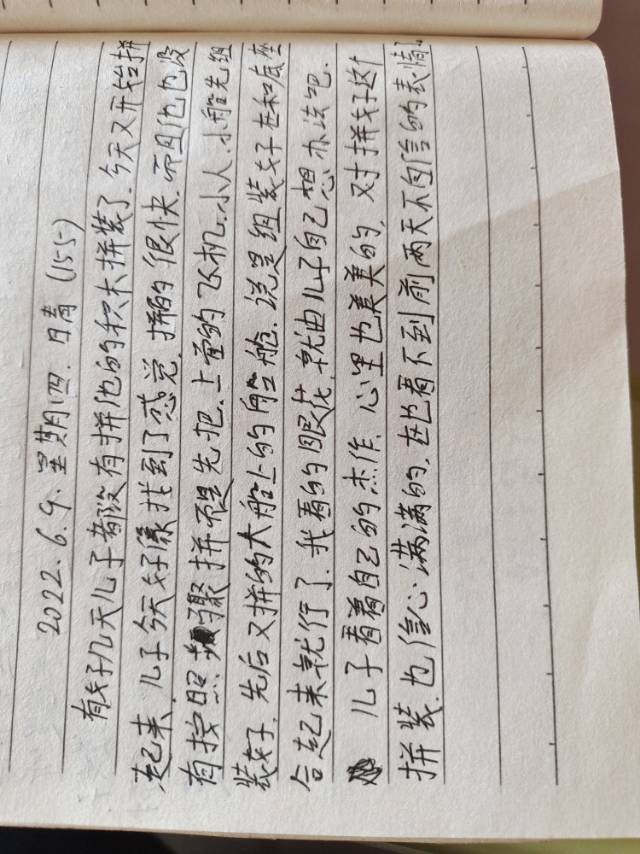 2022.6.9.星期四.日晴(155)
有好几天儿子都没有拼他的积木拼装了.今天又开始拼
起来.儿子今天好像找到了感觉.拼的很快.而且他也没
有按照步骤拼而是先把.上面的飞机.小人.小船先组
装好.先后又拼的大船上的船舱.说是组装好在和底座
合起来就行了.我看的眼花.就由儿子自己想办法吧.
儿子看着自己的杰作.心里也美美的.对拼好这个
拼装.也信心满满的.在也看不到前两天不自信的表情.